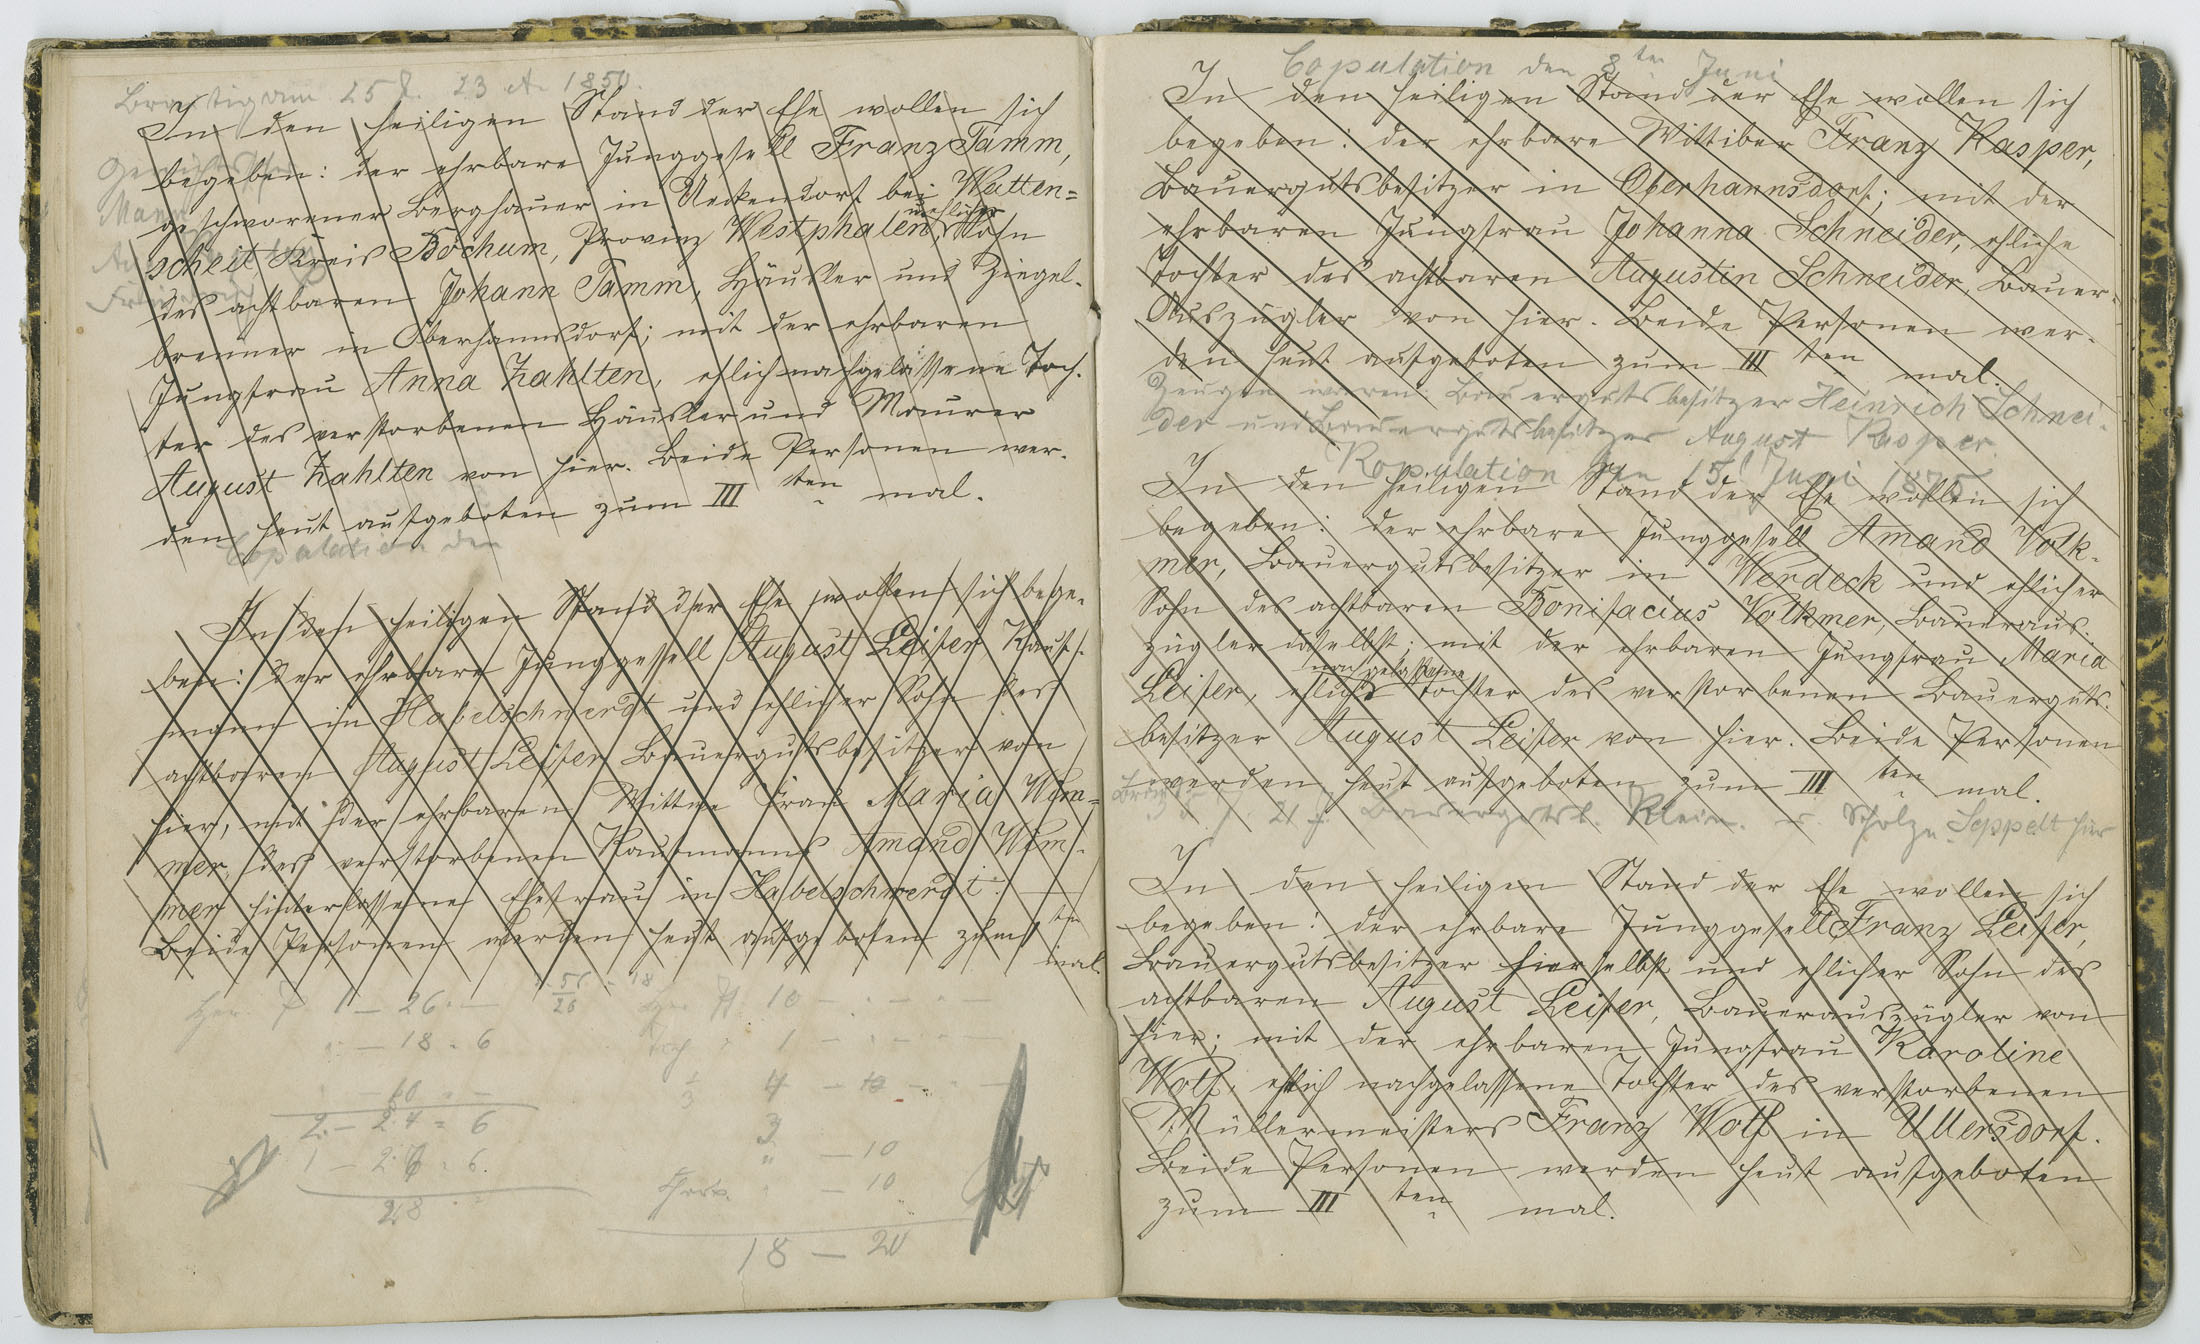 Bräutigam 25 J. 23 A. 1850.
In den heiligen Stand der Ehe wollen sich
begeben: der ehrbare Junggesell Franz Tamm,
geschworener Berghauer in Ueckendorf bei Watten=
scheit Kreis Bochum, Provinz Westphalen, ehlicher Sohn
des achtbaren Johann Tamm, Häusler und Ziegel-
brenner in Oberhannsdorf; mit der ehrbaren
Jungfrau Anna Zahlten, ehlich nachgelassene Toch-
ter des verstorbenen Häusler und Maurer
August Zahlten von hier. Beide Personen wer-
den heut aufgeboten zum III ten mal.
Copulation den
In den heiligen Stand der Ehe wollen sich bege-
ben: der ehrbare Junggesell August Leifer, Kauf-
mann in Habelschwerdt und ehlicher Sohn des
achtbaren August Leifer Bauergutsbesitzer von
hier, mit der ehrbaren Wittwe Frau Maria Wim=
mer, des verstorbenen Kaufmanns Amand Wim-
mer hinterlassene Ehefrau in Habelschwerdt.
Beide Personen werden heut aufgeboten zum ten
mal.
1 — 26
— 18 = 6
— 10
2 — 24 = 6
1 — 26 = 6
28
10
1
4
3
— 10
— 10
18 — 20
Copulation den 8ten Juni
In den heiligen Stand der Ehe wollen sich
begeben: der ehrbare Wittiber Franz Kasper,
Bauergutsbesitzer in Oberhannsdorf; mit der
ehrbaren Jungfrau Johanna Schneider, ehliche
Tochter des achtbaren Augustin Schneider, Bauer-
Auszügler von hier. Beide Personen wer-
den heut aufgeboten zum III ten mal.
Zeugen waren: Bauergutsbesitzer Heinrich Schnei-
der und Bauergutsbesitzer August Kasper.
Kopulation den 15. Juni 1875
In den heiligen Stand der Ehe wollen sich
begeben: der ehrbare Junggesell Amand Volk-
mer, Bauergutsbesitzer in Werdeck und ehlicher
Sohn des achtbaren Bonifacius Volkmer, Baueraus-
zügler daselbst; mit der ehrbaren Jungfrau Maria
Leifer, ehlich nachgelassene Tochter des verstorbenen Bauerguts-
besitzer August Leifer von hier. Beide Personen
werden heut aufgeboten zum III ten mal.
21 J. Bauergutsb. Klein. u. Scholze Seppelt hier
In den heiligen Stand der Ehe wollen sich
begeben: der ehrbare Junggesell Franz Leifer,
Bauergutsbesitzer hierselbst und ehlicher Sohn des
achtbaren August Leifer, Bauerauszügler von
hier; mit der ehrbaren Jungfrau Karoline
Wolf, ehlich nachgelassene Tochter des verstorbenen
Müllermeisters Franz Wolf in Ullersdorf.
Beide Personen werden heut aufgeboten
zum III ten mal.